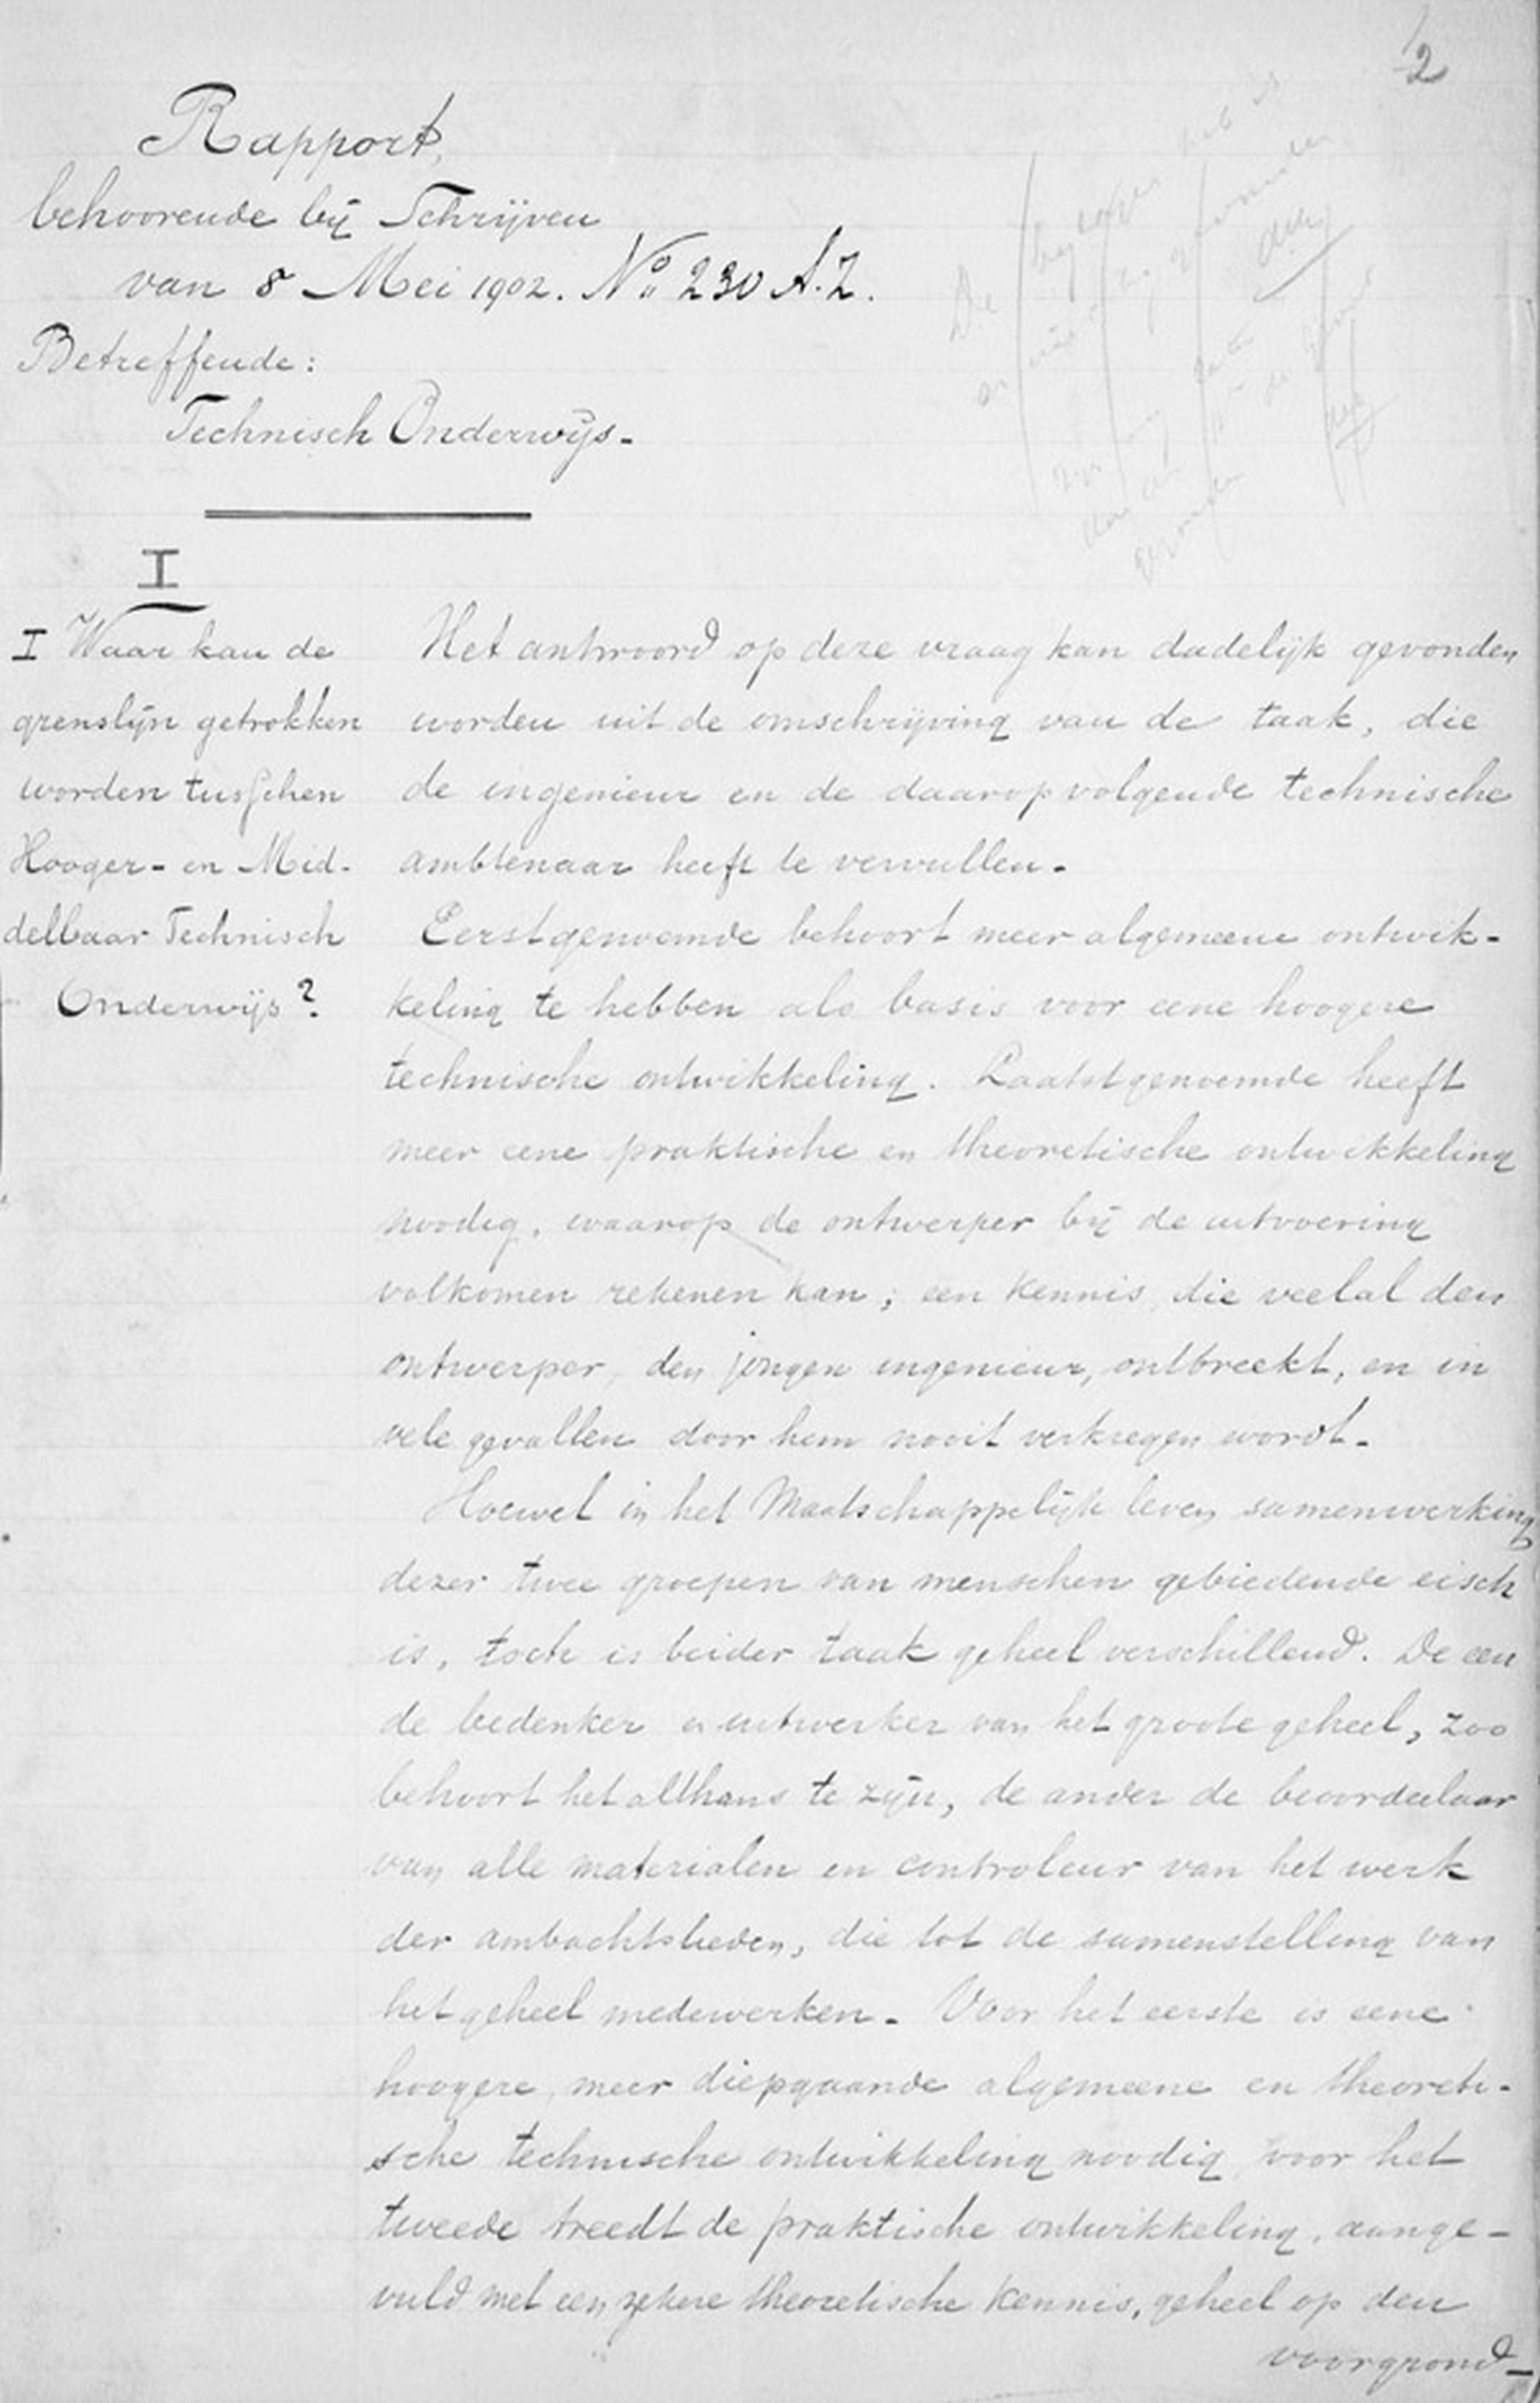 2
Rapport,
behoorende bij Schrijven
van 8 Mei 1902. No 230 A.Z.
Betreffende:
Technisch Onderwijs-
I
I Waar kan de
grenslijn getrokken
worden tusschen
Hooger- en Mid-
delbaar Technisch
Onderwijs?
Het antwoord op deze vraag kan dadelijk gevonden
worden uit de omschrijving van de taak, die
de ingenieur en de daarop volgende technische
ambtenaar heeft te vervullen-
Eerstgenoemde behoort meer algemeene ontwik-
keling te hebben als basis voor eene hoogere
technische ontwikkeling. Laatstgenoemde heeft
meer eene praktische en theoretische ontwikkeling
noodig, waarop de ontwerper bij de uitvoering
volkomen rekenen kan; een kennis, die veelal den
ontwerper, den jongen ingenieur, ontbreekt, en in
vele gevallen door hem nooit verkregen wordt-
Hoewel in het Maatschappelijk leven samenwerking
dezer twee groepen van menschen gebiedende eisch
is, toch is beider taak geheel verschillend. De een
de bedenker en uitwerker van het groote geheel, zoo
behoort het althans te zijn, de ander de beoordeelaar
van alle materialen en controleur van het werk
der ambachtslieden, die tot de samenstelling van
het geheel medewerken- Voor het eerste is eene
hoogere, meer diepgaande algemeene en theoreti-
sche technische ontwikkeling noodig, voor het
tweede treedt de praktische ontwikkeling, aange-
vuld met een zekere theoretische kennis, geheel op den
voorgrond-